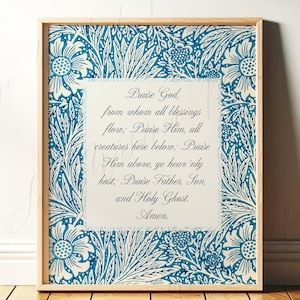 Praise God,
from whom all blessings
flow; Praise Him, all
creatures here below; Praise
Him above, ye heav'nly
host; Praise Father, Son,
and Holy Ghost.
Amen.